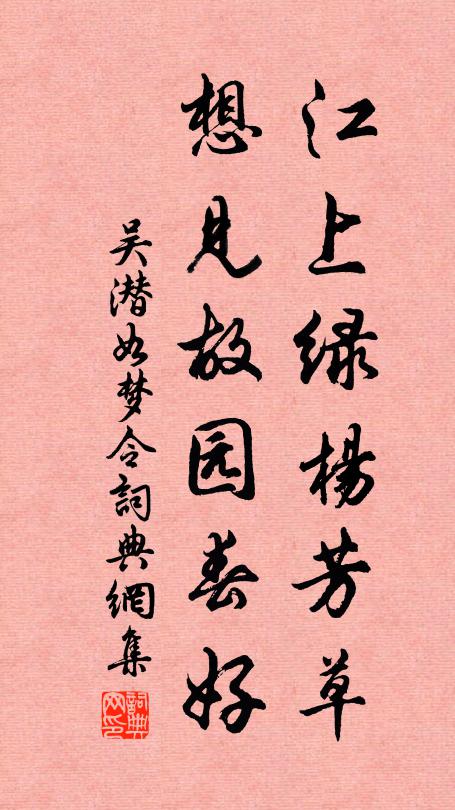 江上绿楊芳草
想見故园春好
吴潜如梦令詞典網集
詞典
网印